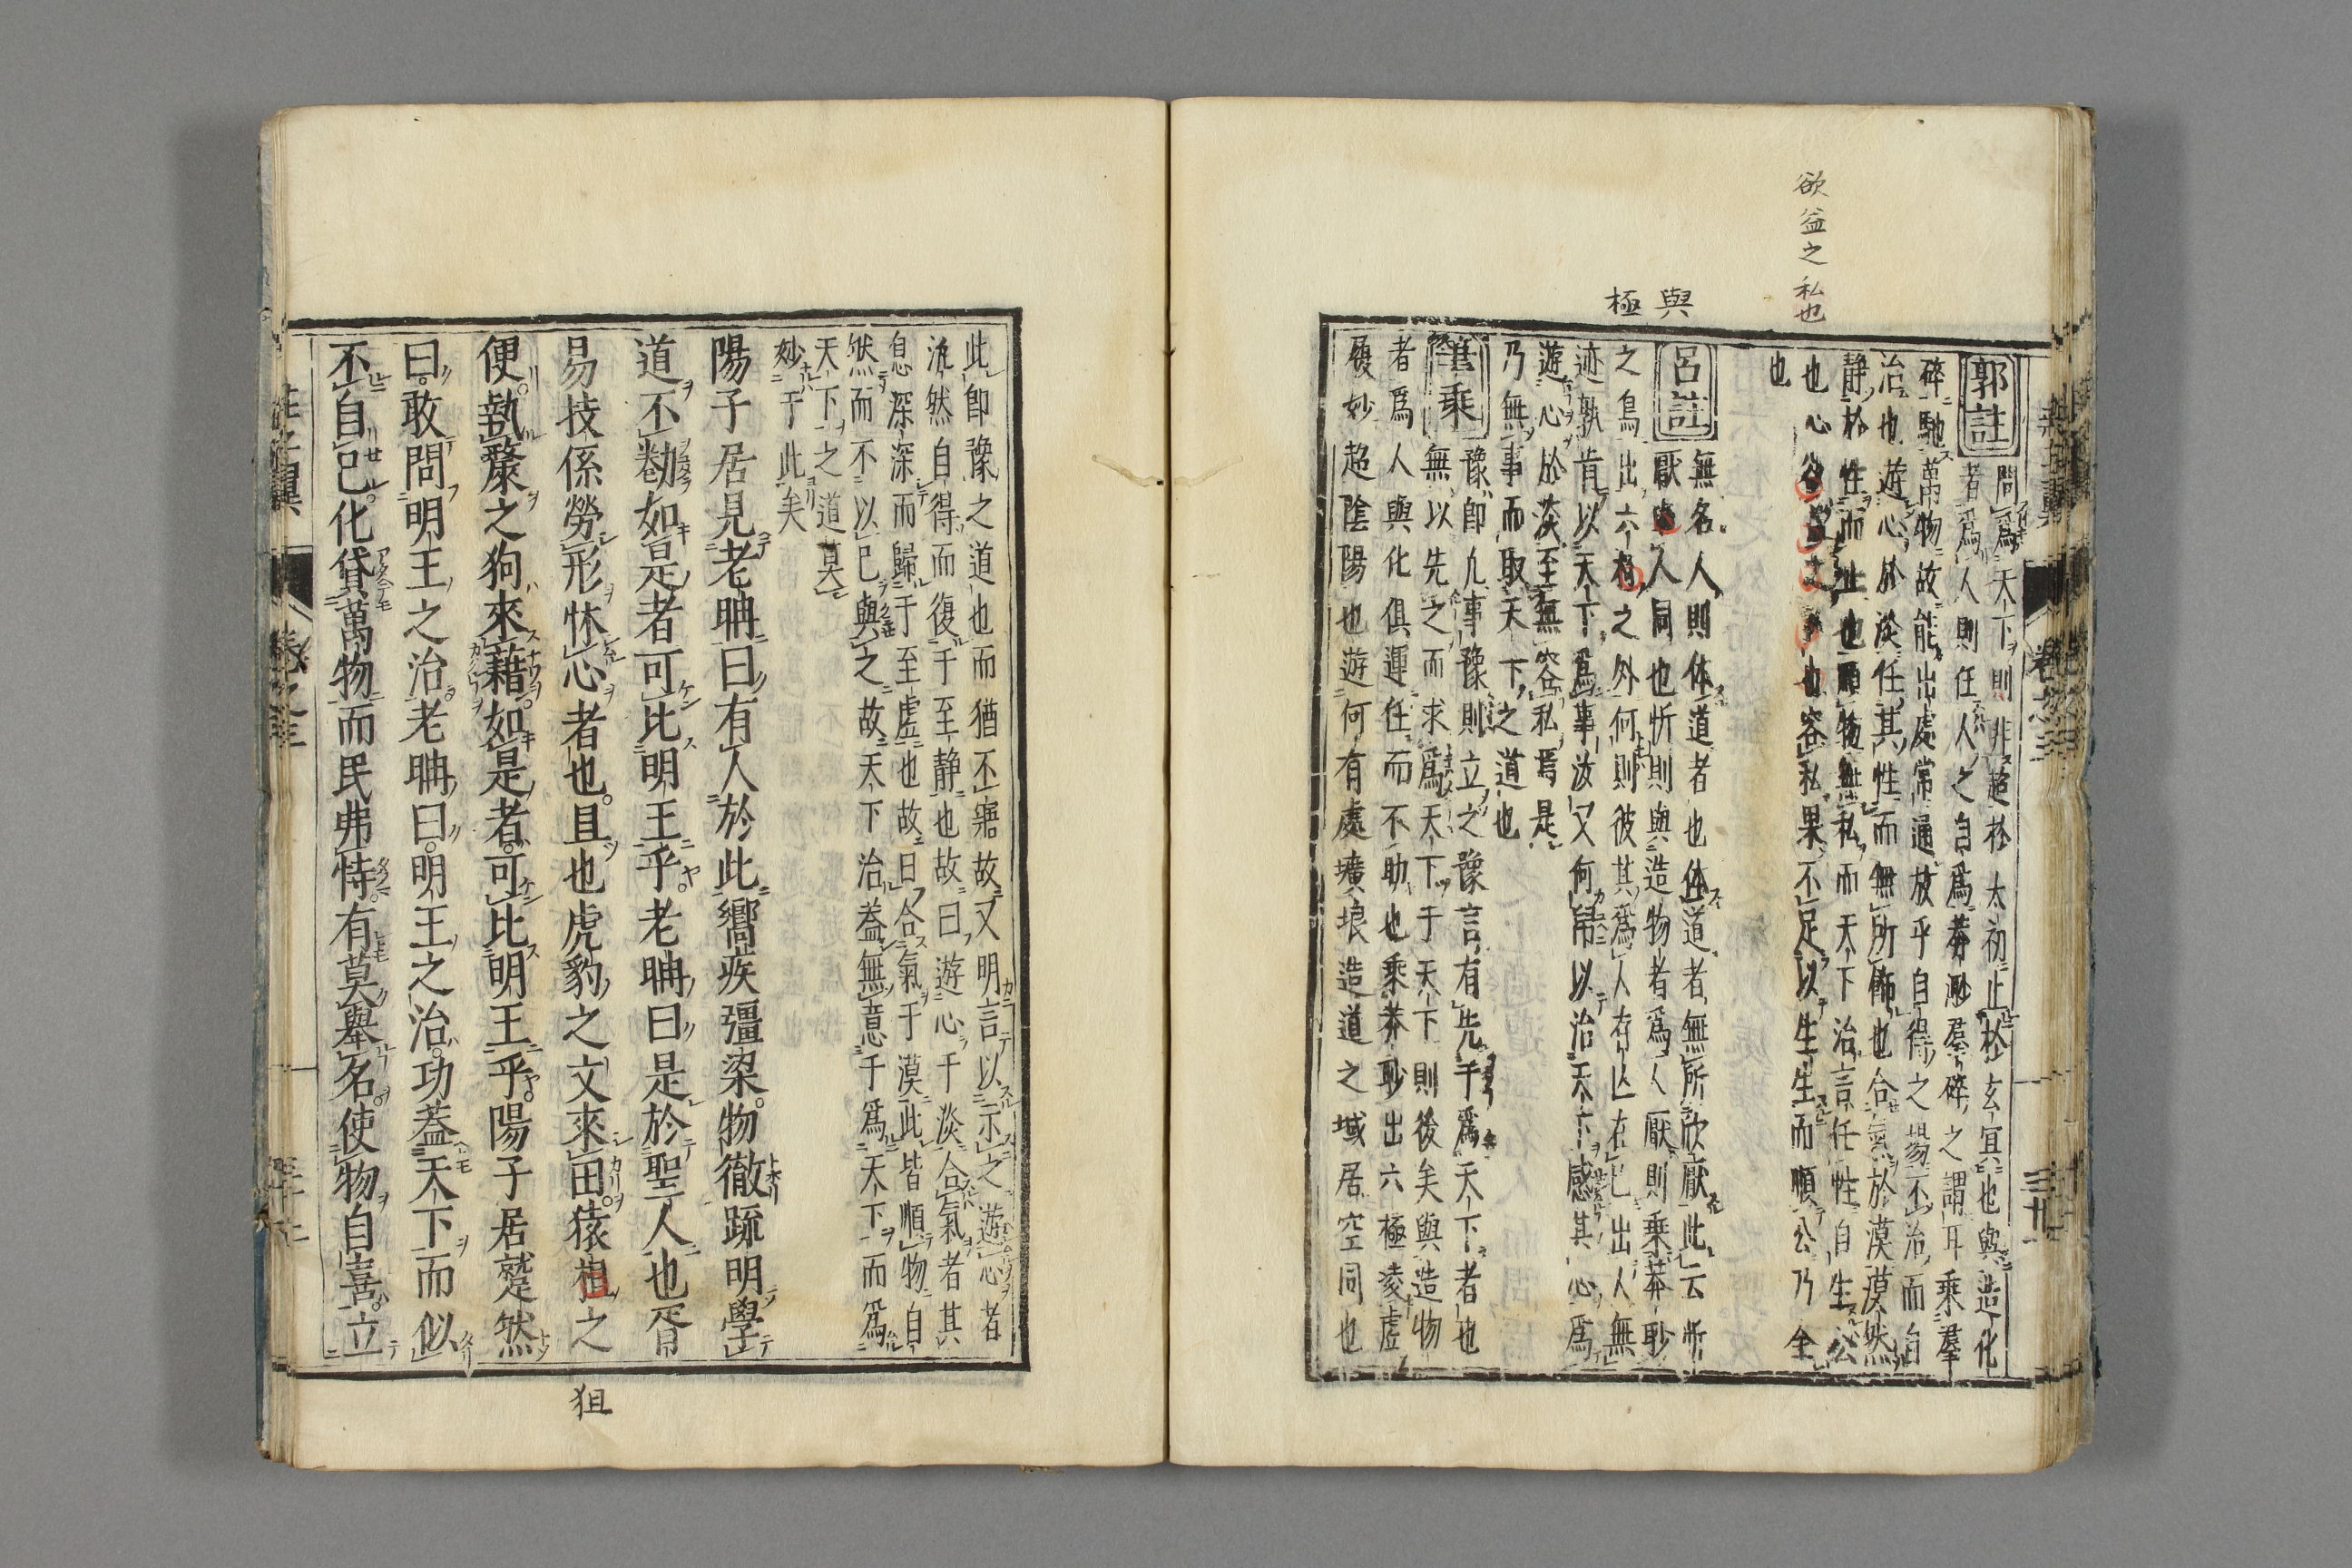 欲益之私也
與
極
郭註
問爲天下則非超於太初止於玄冥也與造化
者爲人則任人之自爲莽眇羣碎之謂耳乘羣
碎馳萬物故能出處常通放乎自得之場不治而自
治也遊心於淡任其性而無所飾也合氣於漠漠然
静於性而止也順物無私而天下治言任性自生公
也心也容私果不足以生生而順公乃全
也
呂註
無名人則体道者也体道者無所欣厭此云忻
厭人同也忻則與造物者爲人厭則乘莽眇
之鳥出六之外何則彼其爲人存亡在已出人無
迹孰肯以天下爲事汝又何帠以治天下感其心爲
遊心於淡至無容私焉是
乃無事而取天下之道也
筆乘
豫卽凡事豫則立之豫言有先于爲天下者也
無以先之而求爲天下于天下則後矣與造物
者爲人與化俱運任而不助也乘莽眇出六極凌虛
履妙超陰陽也遊何有處壙埌造道之域居空同也
此卽豫之道也而猶不寤故又明言以示之遊心者
泯然自得而復于至静也故曰遊心于淡合氣者其
息深深而歸于至虛也故曰合氣于漠此皆順物自
然而不以已與之故天下治蓋無意于爲天下而爲
天下之道莫
妙于此矣
陽子居見老聃曰有人於此嚮疾彊梁物徹疏明學
道不勌如是者可比明王乎老聃曰是於聖人也胥
易技係勞形怵心者也且也虎豹之文來田猿之
便執斄之狗來藉如是者可比明王乎陽子居蹵然
曰敢問明王之治老聃曰明王之治功蓋天下而似
不自已化貸萬物而民弗恃有莫舉名使物自喜立
狙
莊子翼
卷之三